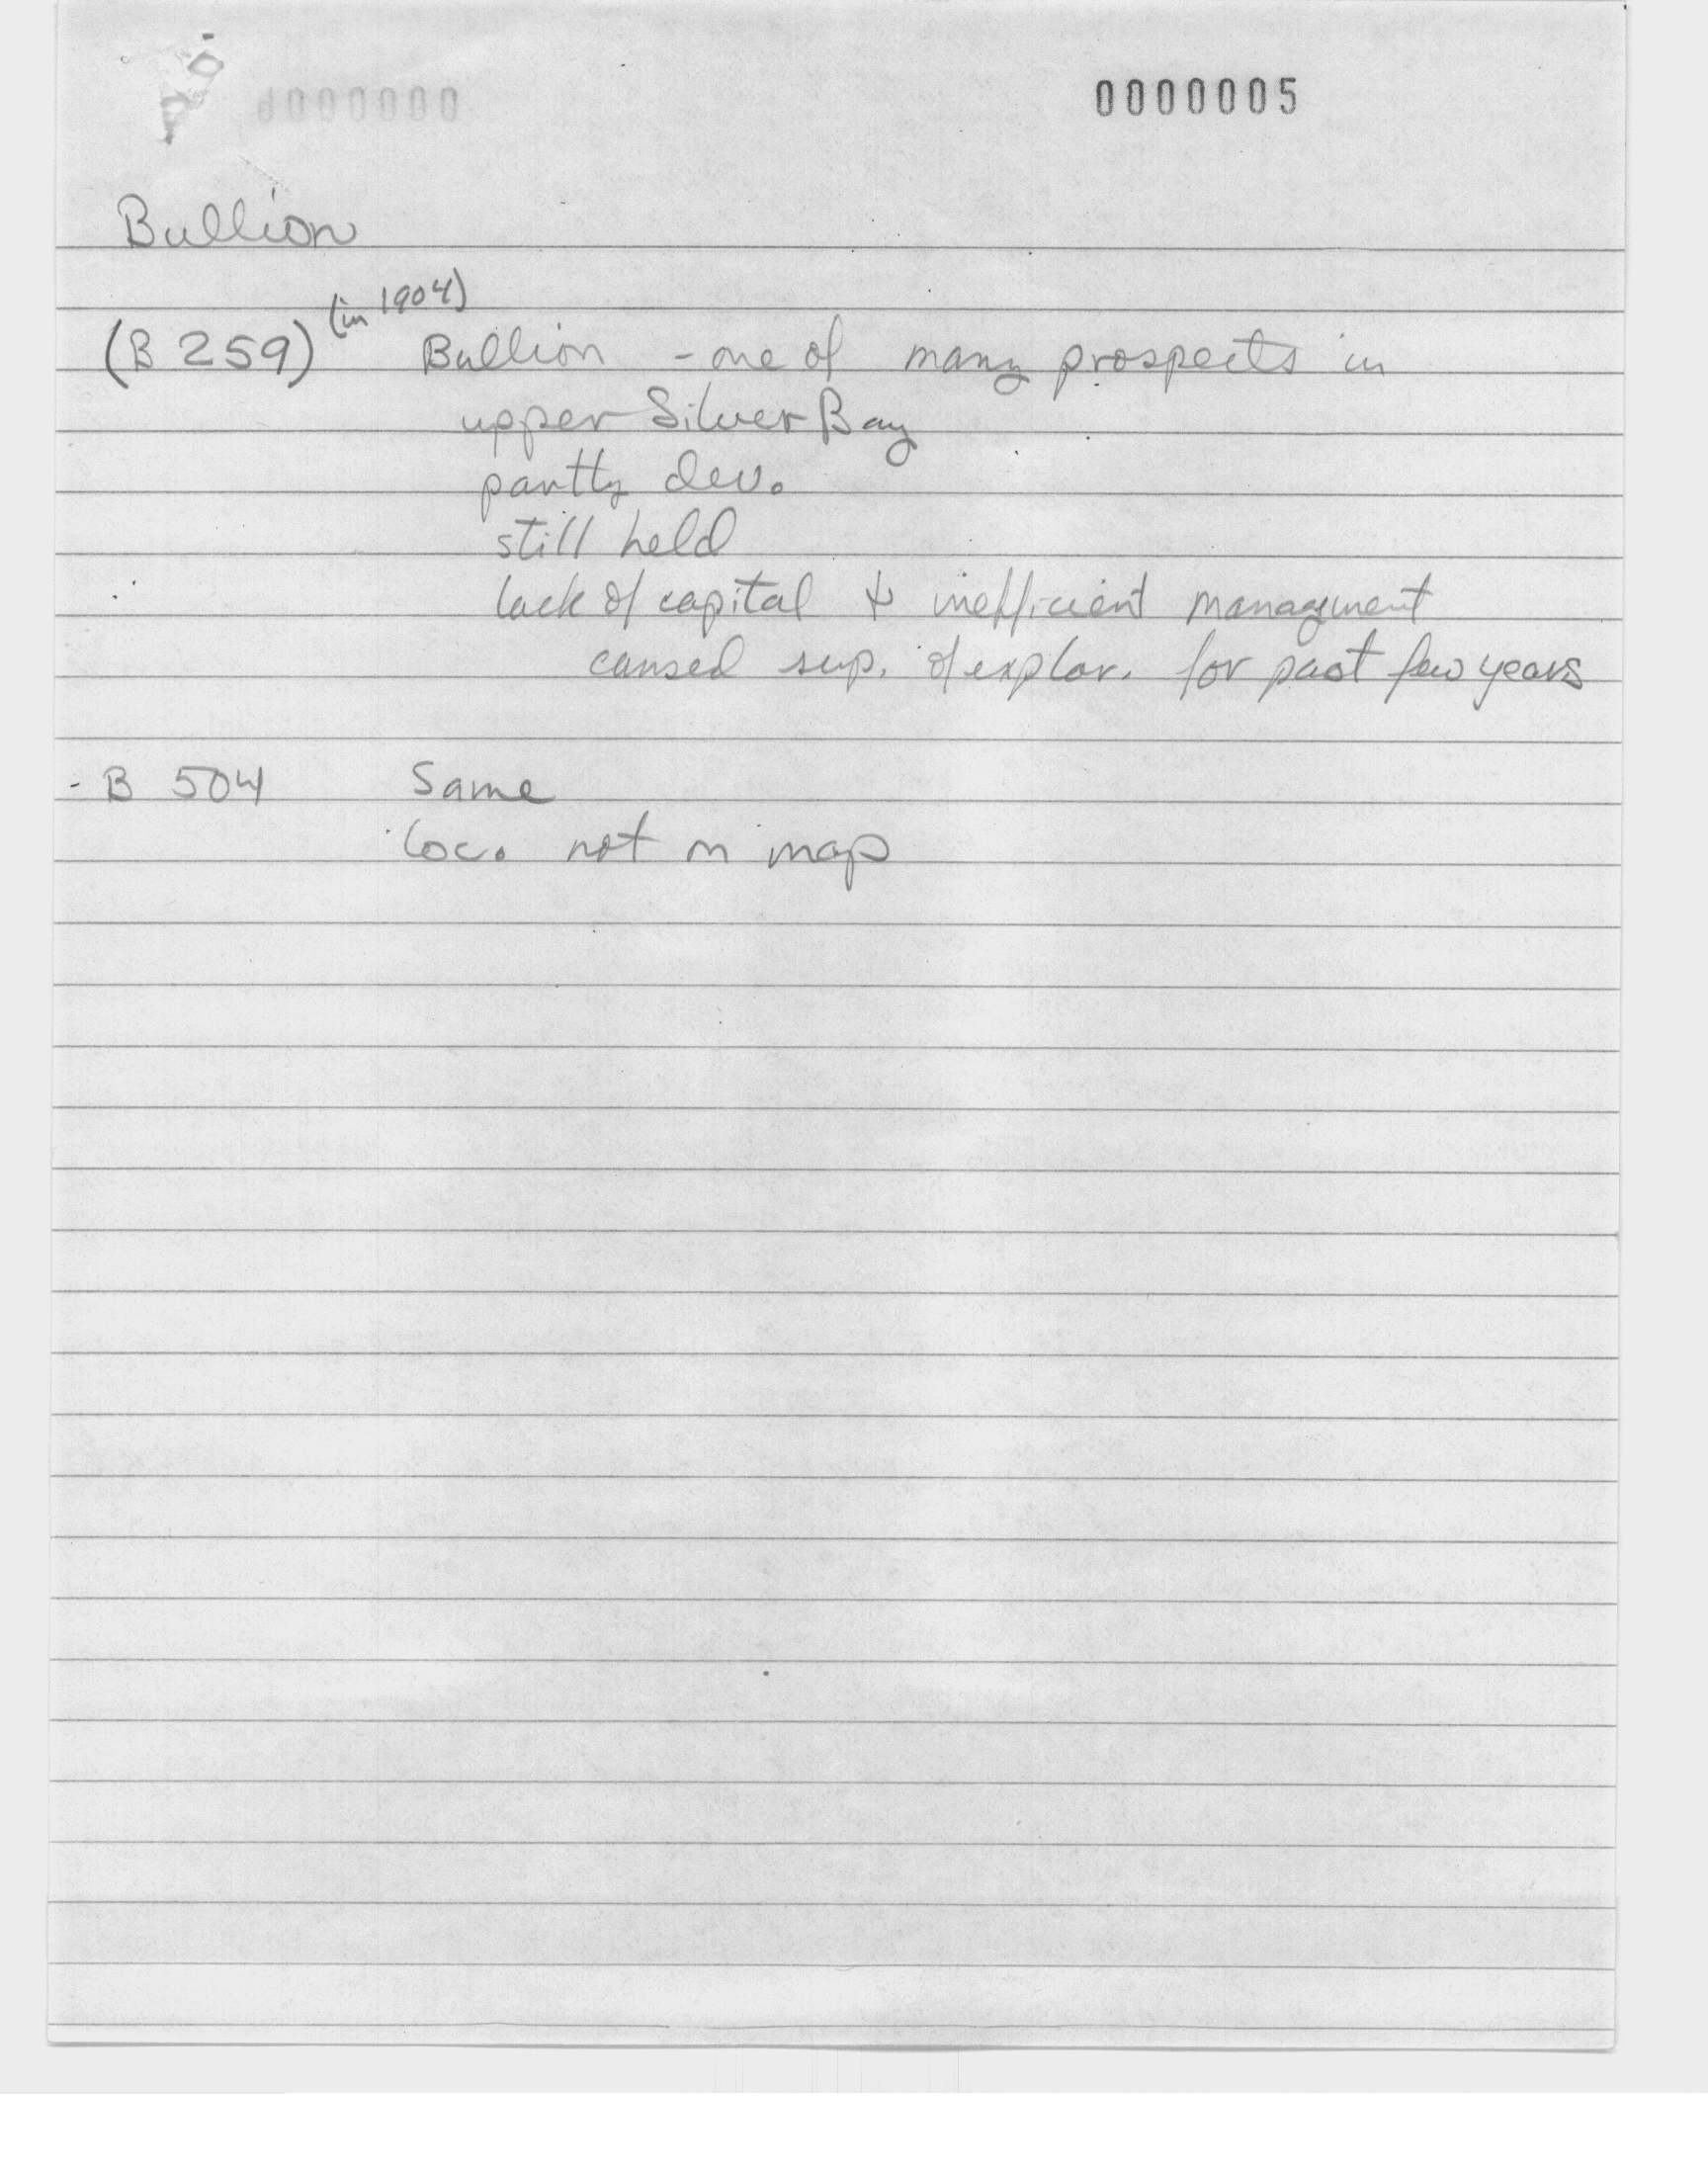 0000005
Bullion
(B 259) (in 1904) Bullion - one of many prospects in
upper Silver Bay
partly dev.
still held
lack of capital & inefficient management
caused sup. of explor. for past few years
- B 504 Same
loc. not on map